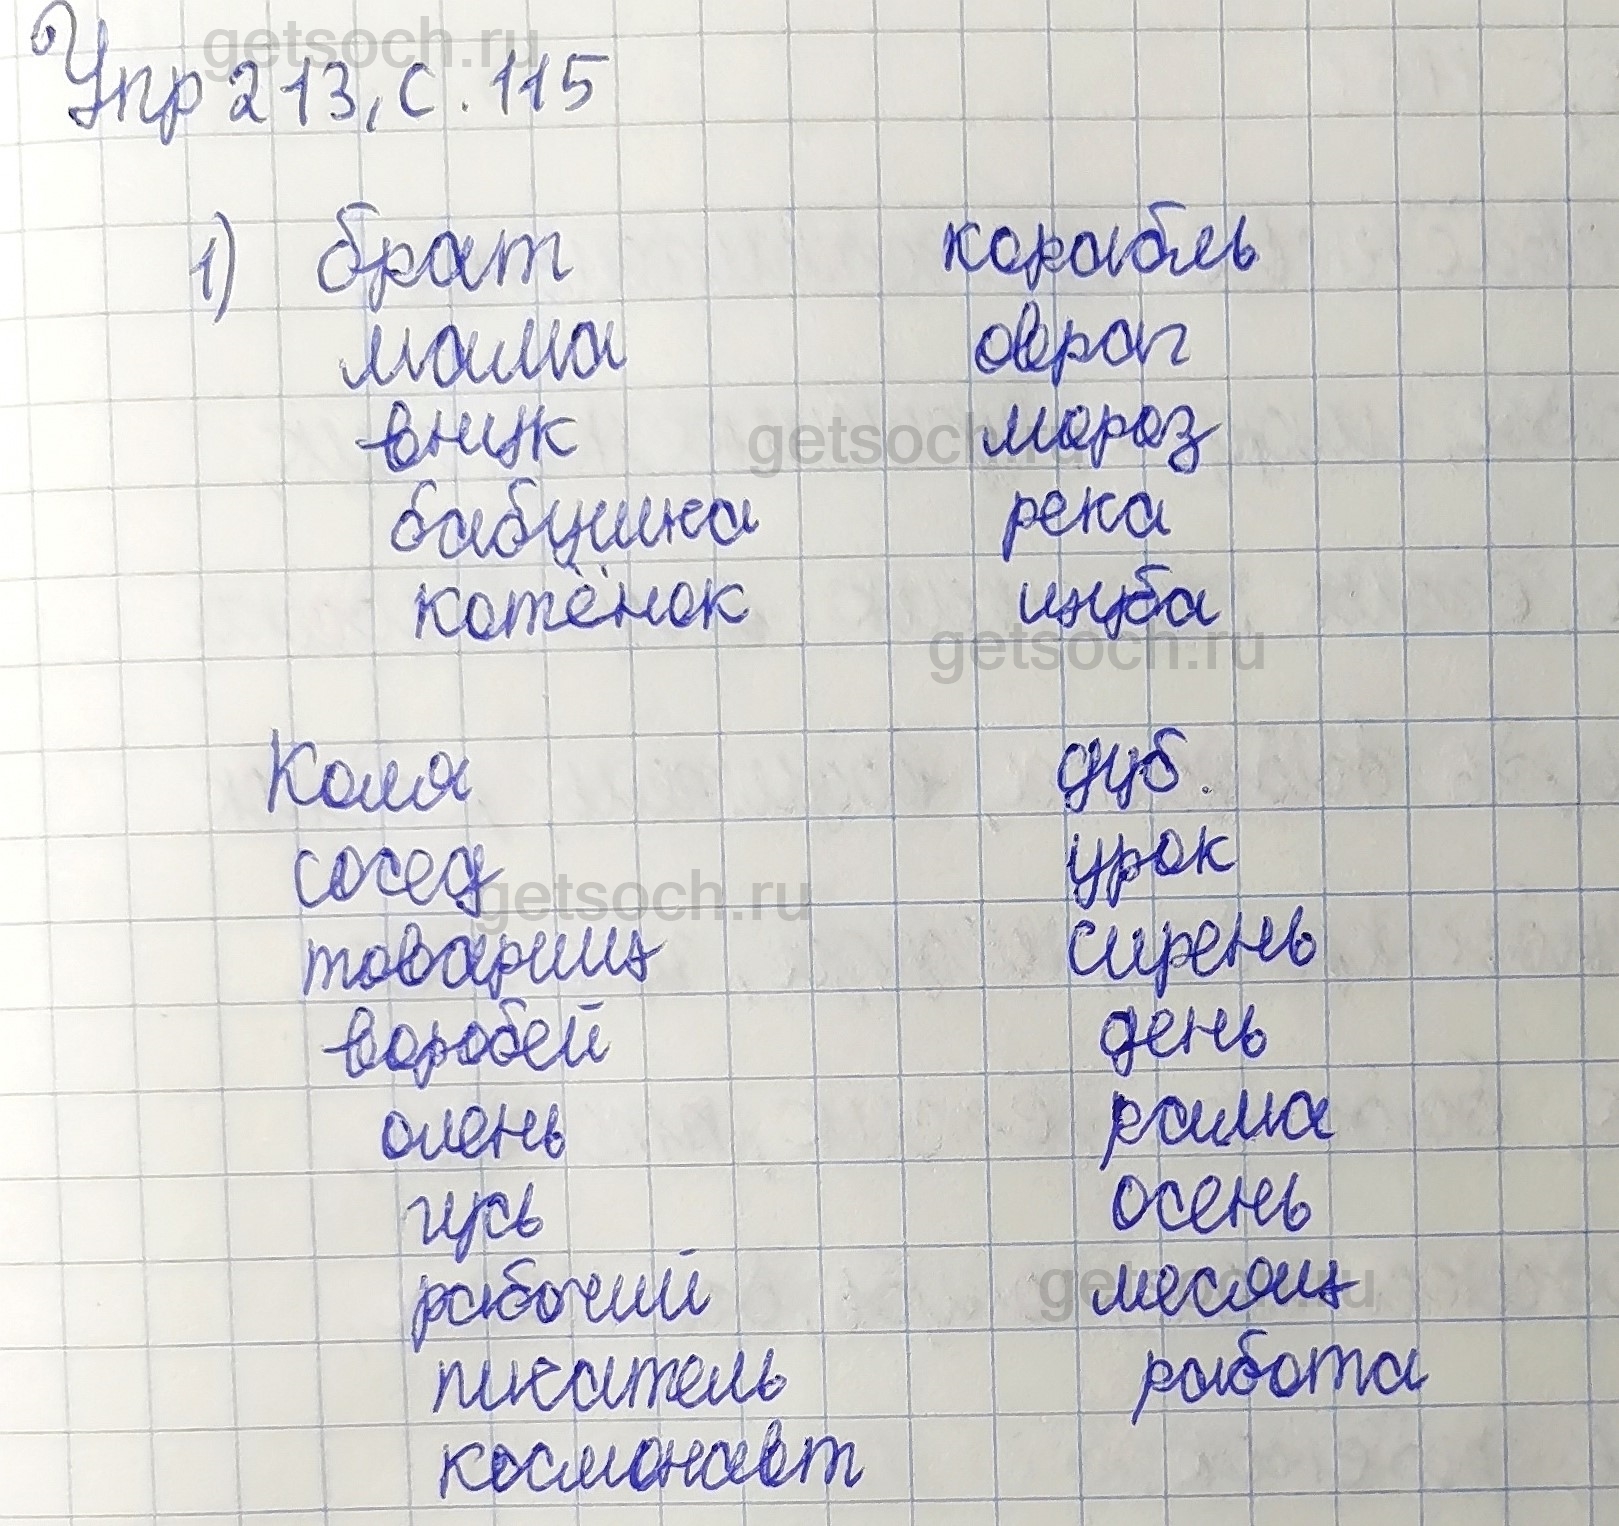 getsoch.ru
Упр 213, с. 115
1) брат корабль
мама овраг
внук мороз
getsoch.ru
бабушка река
котёнок шуба
getsoch.ru
Коля дуб.
сосед урок
getsoch.ru
товарищ сирень
воробей день
олень рама
гусь осень
рабочий месяц
getsoch.ru
писатель работа
космонавт